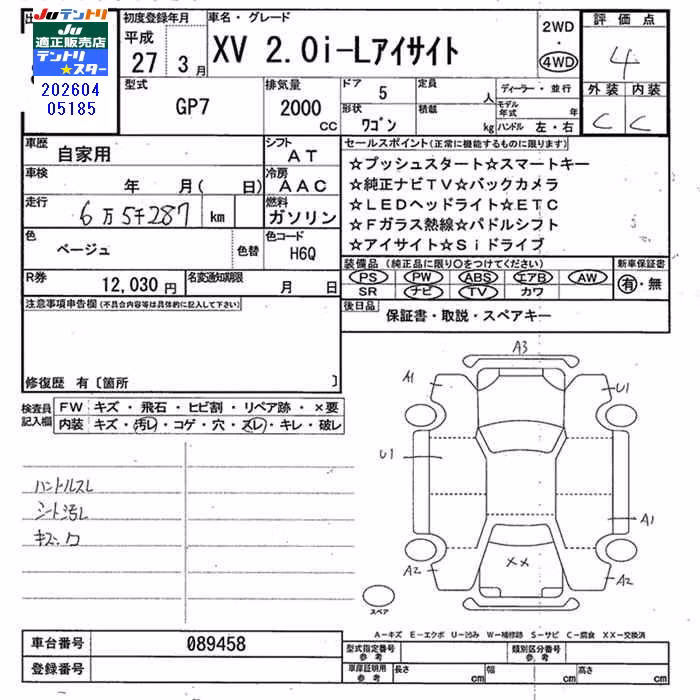 JUテントリ
JU
適正販売店
テントリ
★スター
202604
05185
初度登録年月
平成
27 3 月
車名・グレード
XV 2.0i-Lアイサイト
2WD
・
4WD
評価点
4
外装 内装
C C
型式
GP7
排気量
2000
CC
ドア
5
定員
人
形状
ワゴン
積載
kg
ディーラー・並行
モデル年式 年
ハンドル 左・右
車歴
自家用
シフト
AT
車検
年 月( 日)
冷房
AAC
走行
6万5千287 km
燃料
ガソリン
色
ベージュ
色替
色コード
H6Q
R券
12,030 円
名変通知期限
月 日
セールスポイント(正常に機能するものに限ります)
☆プッシュスタート☆スマートキー
☆純正ナビTV☆バックカメラ
☆LEDヘッドライト☆ETC
☆Fガラス熱線☆パドルシフト
☆アイサイト☆Siドライブ
装備品(純正品に限り○をつけてください)
PS PW ABS エアB AW
SR ナビ TV カワ
新車保証書
有・無
後日品
保証書・取説・スペアキー
注意事項申告欄(不具合内容等は具体的に記入して下さい)
修復歴 有〔箇所 〕
検査員
記入欄
FW キズ・飛石・ヒビ割・リペア跡・×要
内装 キズ・汚レ・コゲ・穴・スレ・キレ・破レ
ハンドルスレ
シート汚レ
A3
A1
U1
U1
A1
A2
××
A2
スペア
A−キズ E−エクボ U−凹み W−補修跡 S−サビ C−腐食 XX−交換済
車台番号
089458
登録番号
型式指定番号
参考
類別区分番号
参考
車庫証明用
参考
長さ cm 幅 cm 高さ cm